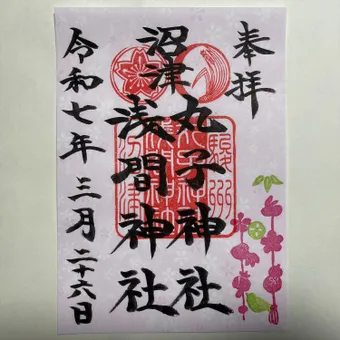 奉拝
沼津
丸子神社
浅間神社
令和七年三月二十六日